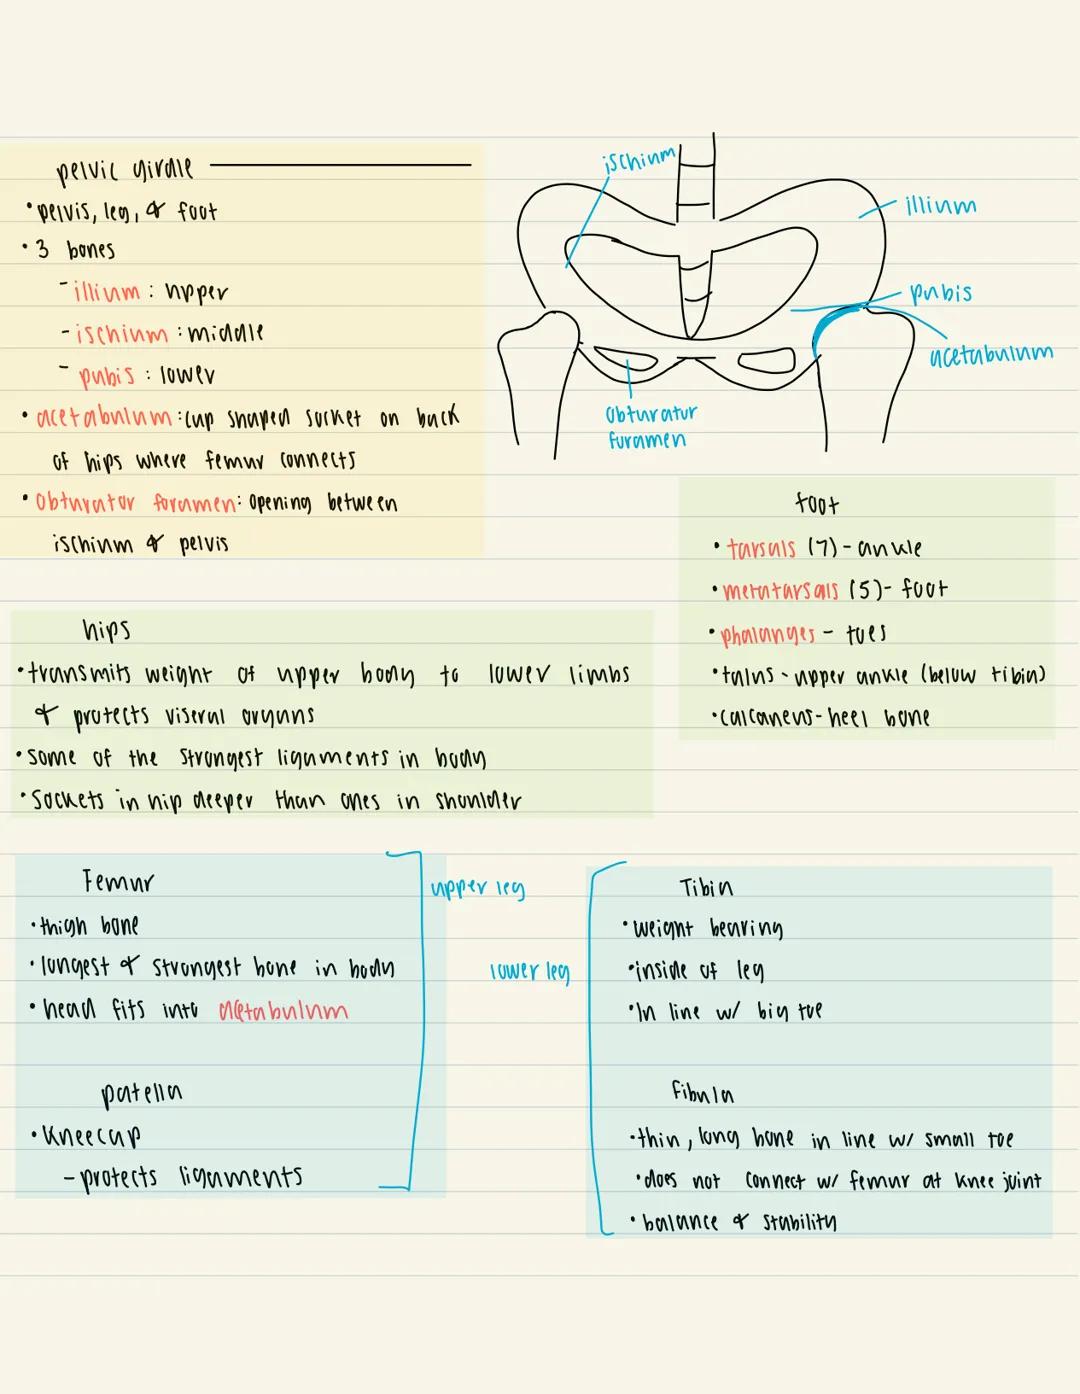 pelvic girdle
• pelvis, leg, & foot
• 3 bones
- illium : upper
- ischium : middle
- pubis : lower
• acetabulum : cup shaped socket on back
of hips where femur connects
• Obturator foramen: opening between
ischium & pelvis
ischium
illium
pubis
acetabulum
obturatur
furamen
foot
• tarsals (7) - ankle
• metatarsals (5) - foot
• phalanges - toes
• talus - upper ankle (below tibia)
• calcaneus - heel bone
hips
• transmits weight of upper body to lower limbs
& protects viseral organs
• Some of the strongest ligaments in body
• Sockets in hip deeper than ones in shoulder
Femur
• thigh bone
• longest & strongest bone in body
• head fits into acetabulum
patella
• kneecap
- protects ligaments
upper leg
lower leg
Tibia
• weight bearing
• inside of leg
• In line w/ big toe
fibula
• thin, long bone in line w/ small toe
• does not connect w/ femur at knee joint
• balance & stability